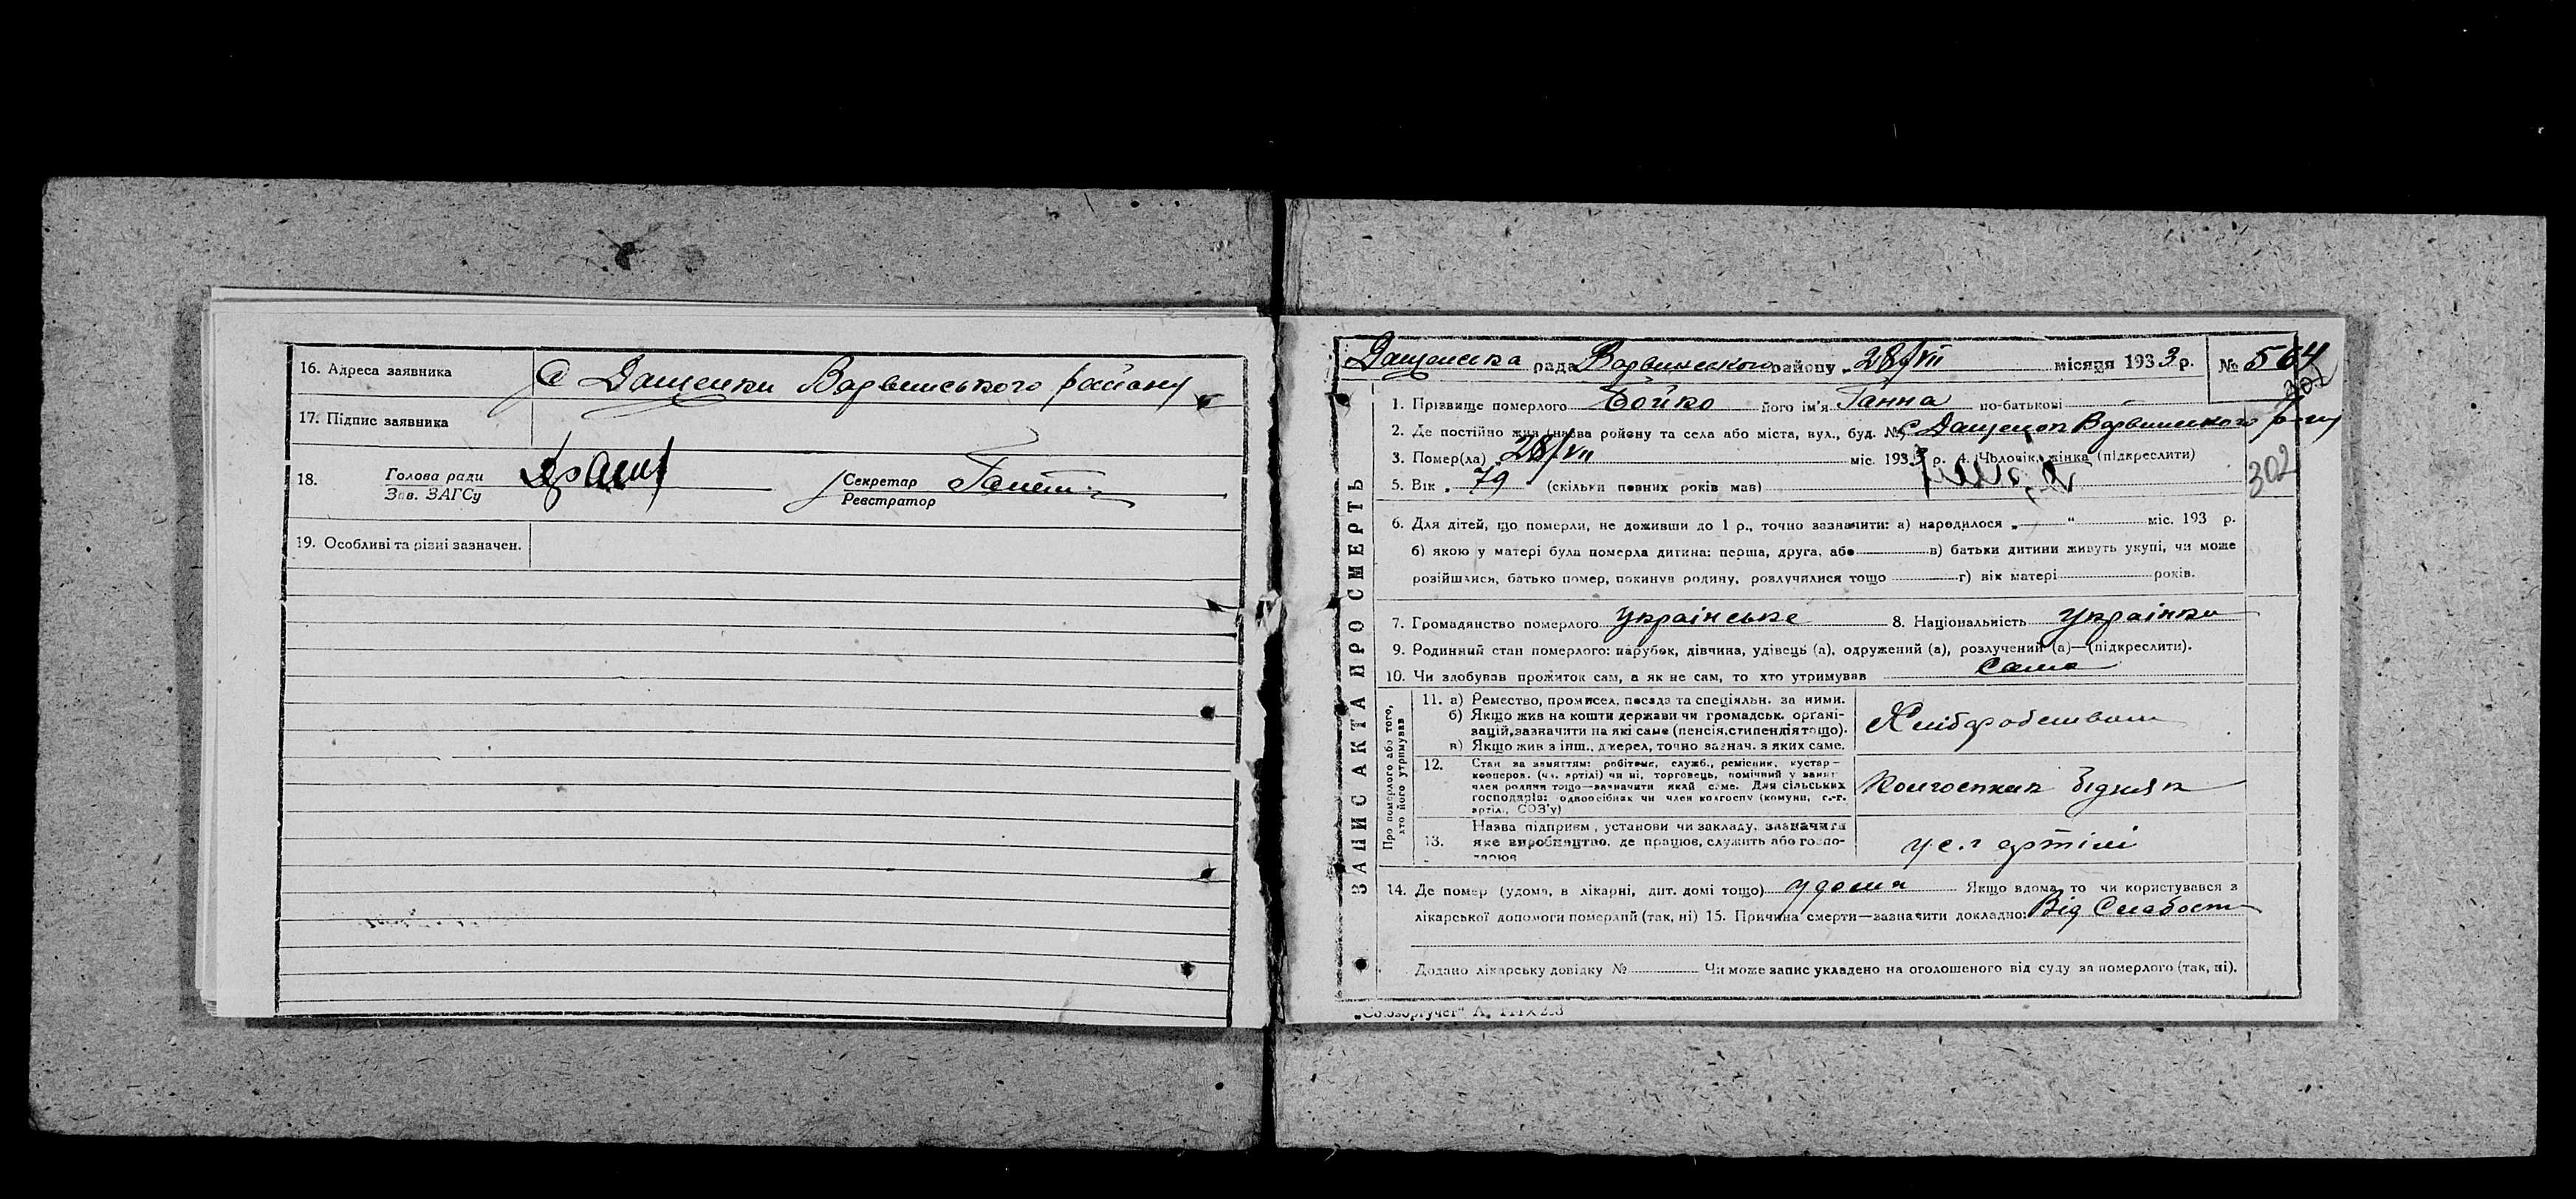 16. Адреса заявника С Дащенки Варвинського району
17. Підпис заявника
18. Голова ради Секретар
Зав. ЗАГСу Реєстратор
19. Особливі та різні зазначен.
ЗАПИС АКТА ПРО СМЕРТЬ
Дащенська рада Варвинського району „28/VII місяця 1933 р. № 564
302
1. Прізвище померлого Бойко його ім'я Ганна по-батькові –
2. Де постійно жив (назва ройону та села або міста, вул., буд. № с Дащенки Варвинського р-ну
3. Помер(ла) „28/VII міс. 1933 р. 4. Чоловік, жінка (підкреслити)
5. Вік „ 79 (скільки повних років мав)
302
6. Для дітей, що померли, не доживши до 1 р., точно зазначити: а) народилося „ “ міс. 193 р.
б) якою у матері була померла дитина: перша, друга, або в) батьки дитини живуть укупі, чи може
розійшлися, батько помер, покинув родину, розлучилися тощо г) вік матері років.
7. Громадянство померлого українське 8. Національність українка
9. Родинний стан померлого: парубок, дівчина, удівець (а), одружений (а), розлучений (а)—(підкреслити).
10. Чи здобував прожиток сам, а як не сам, то хто утримував Сама
Про померлого або того,
хто його утримував
11. а) Ремество, промисел, посада та спеціяльн. за ними.
б) Якщо жив на кошти держави чи громадськ. органі-
зацій, зазначити на які саме (пенсія, стипендія тощо).
в) Якщо жив з інш., джерел, точно зазнач. з яких саме.
12. Стан за заняттям: робітник, служб., ремісник, кустар-
кооперов. (чл. артілі) чи ні, торговець, помічний у занят
член родини тощо—зазначити який саме. Для сільських
господарів: одноосібник чи член колгоспу (комуни, с.-г.
артіл., СОЗ'у)
Колгоспник бідняк
13. Назва підприєм., установи чи закладу, зазначити
яке виробництво, де працює, служить або госпо-
дарює
у с.г артілі
14. Де помер (удома, в лікарні, дит. домі тощо) удома Якщо вдома, то чи користувався з
лікарської допомоги померлий (так, ні) 15. Причина смерти—зазначити докладно: Від Слабости
Додано лікарську довідку № Чи може запис укладено на оголошеного від суду за померлого (так, ні).
„Союзоргучет“